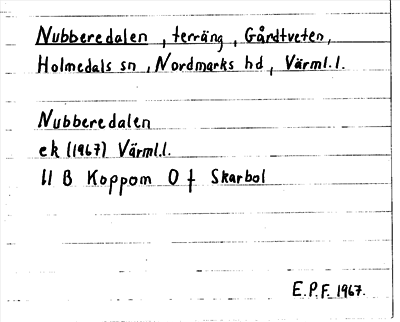 Nubberedalen, terräng, Gårdtveten,
Holmedals sn, Nordmarks hd, Värml. l.
Nubberedalen
ek (1967) Värml. l.
11 B Koppom 0 f Skarbol
E.P.F. 1967.